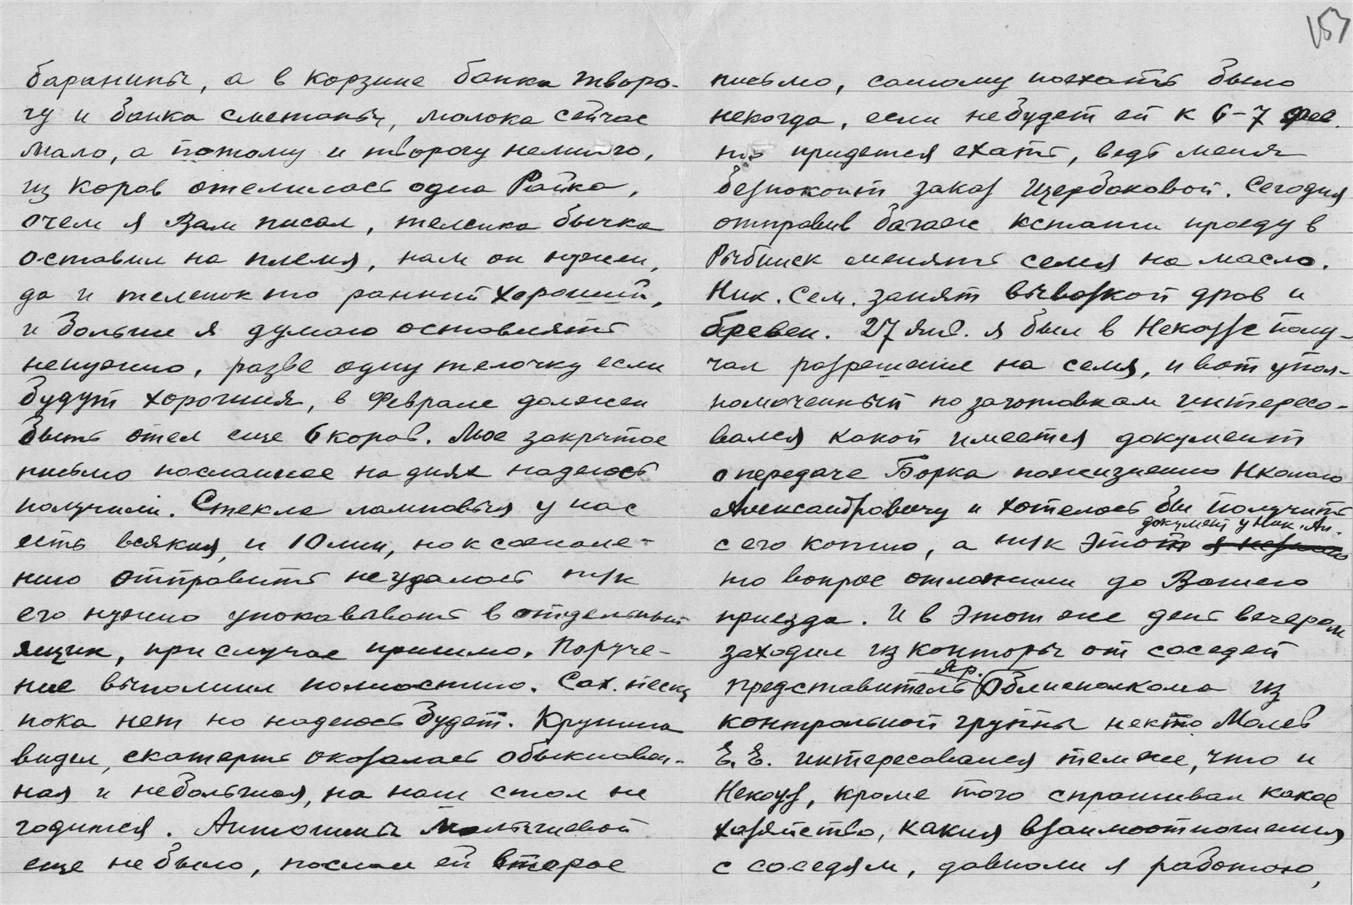 157
баранины, а в корзине банка творо-
гу и банка сметаны, молока сейчас
мало, а потому и творогу немного,
из коров отелилась одна Райка,
очем я Вам писал, теленка бычка
оставил на племя, нам он нужен,
да и теленок то ранний хороший,
и больше я думаю оставлять
ненужно, разве одну телочку если
будут хорошия, в Феврале должен
быть отел еще 6 коров. Мое закрытое
письмо посланное на днях надеюсь
получили. Стекла ламповыя у нас
есть всякия, и 10 лин, но к сожале-
нию отправить неудалось т/к
его нужно упаковывать в отдельный
ящик, при случае пришлю. Поруче-
ние выполнил полностию. Сах. песку
пока нет но надеюсь будет. Крупина
видел, скатерть оказалась обыкновен-
ная и небольшая, на наш стол не
годится. Антонины Малышевой
еще небыло, послал ей второе
письмо, самому поехать было
некогда, если небудет ей к 6-7 фев.
то придется ехать, ведь меня
безпокоит заказ Щербаковой. Сегодня
отправив багаж кстати проеду в
Рыбинск менять семя на масло.
Ник. Сем. занят вывозкой дров и
бревен. 27 Янв. я был в Некоузе полу-
чал разрешение на семя, и вот упол-
номоченный по заготовкам интересо-
вался какой имеется документ
о передаче Борка пожизненно Нколаю
Александровичу и хотелось бы получить
документ у Ник. Ал.
с его копию, а т/к этот
то вопрос отложили до Вашего
приезда. И в этот же день вечером
заходил из конторы от соседей
Яр.
представитель Облисполкома из
контрольной группы некто Малев
Е. Е. интересовался темже, что и
Некоуз, кроме того спрашивал какое
хозяйство, какия взаимоотношения
с соседям, давноли я работаю,